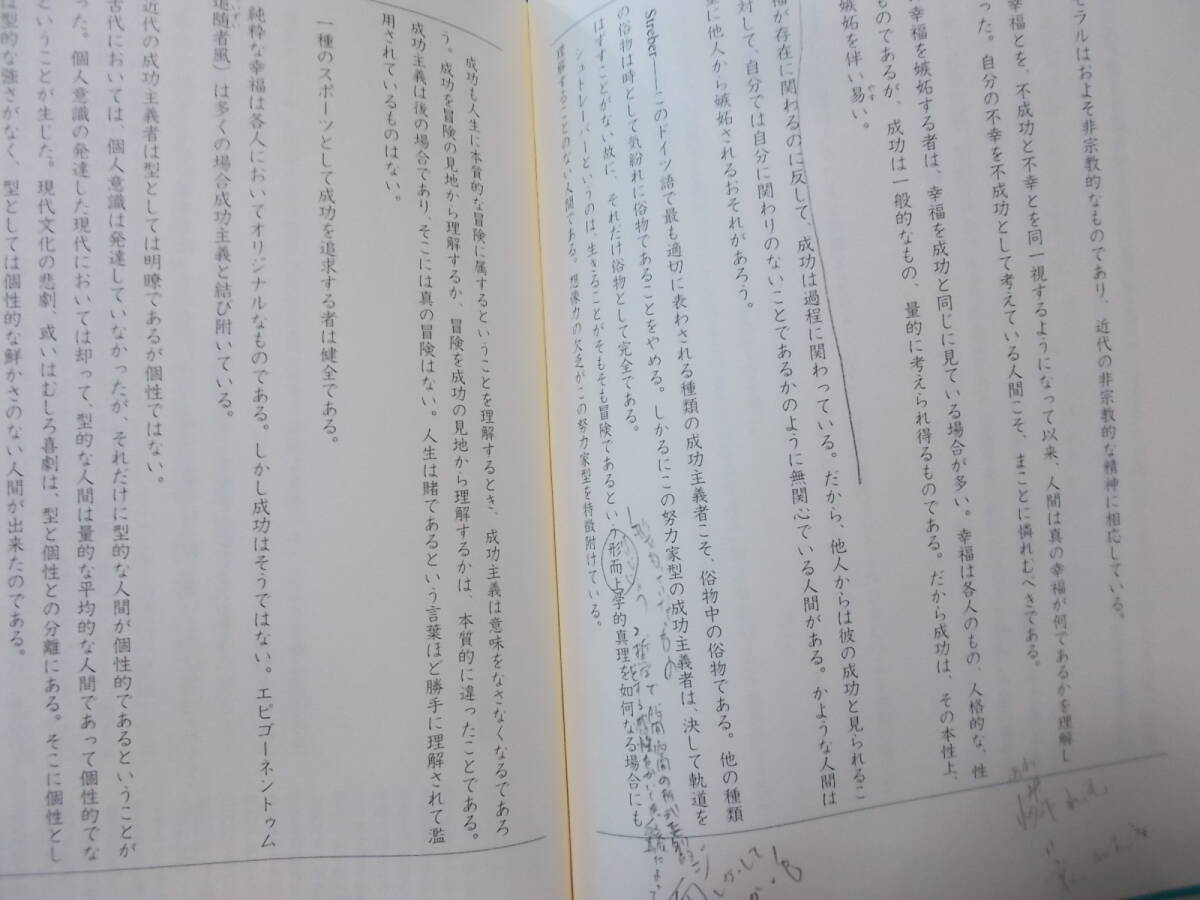 モラルはおよそ非宗教的なものであり、近代の非宗教的な精神に相応している。
幸福とを、不成功と不幸とを同一視するようになって以来、人間は真の幸福が何であるかを理解し
った。自分の不幸を不成功として考えている人間こそ、まことに憐れむべきである。
幸福を嫉妬する者は、幸福を成功と同じに見ている場合が多い。幸福は各人のもの、人格的な、性
ものであるが、成功は一般的なもの、量的に考えられ得るものである。だから成功は、その本性上、
嫉妬を伴い易い。
やす
福が存在に関わるのに反して、成功は過程に関わっている。だから、他人からは彼の成功と見られるこ
対して、自分では自分に関わりのないことであるかのように無関心でいる人間がある。かような人間は
に他人から嫉妬されるおそれがあろう。
Streber――このドイツ語で最も適切に表わされる種類の成功主義者こそ、俗物中の俗物である。他の種類
の俗物は時として気紛れに俗物であることをやめる。しかるにこの努力家型の成功主義者は、決して軌道を
はずすことがない故に、それだけ俗物として完全である。
シュトレーバーというのは、生きることがそもそも冒険であるという形而上学的真理を如何なる場合にも
理解することのない人間である。想像力の欠乏がこの努力家型を特徴附けている。
成功も人生に本質的な冒険に属するということを理解するとき、成功主義は意味をなさなくなるであろ
う。成功を冒険の見地から理解するか、冒険を成功の見地から理解するかは、本質的に違ったことである。
成功主義は後の場合であり、そこには真の冒険はない。人生は賭であるという言葉ほど勝手に理解されて濫
用されているものはない。
一種のスポーツとして成功を追求する者は健全である。
純粋な幸福は各人においてオリジナルなものである。しかし成功はそうではない。エピゴーネントゥム
追随者風）は多くの場合成功主義と結び附いている。
近代の成功主義者は型としては明瞭であるが個性ではない。
古代においては、個人意識は発達していなかったが、それだけに型的な人間が個性的であるということが
った。個人意識の発達した現代においては却って、型的な人間は量的な平均的な人間であって個性的でな
ということが生じた。現代文化の悲劇、或いはむしろ喜劇は、型と個性との分離にある。そこに個性とし
は型的な強さがなく、型としては個性的な鮮かさのない人間が出来たのである。